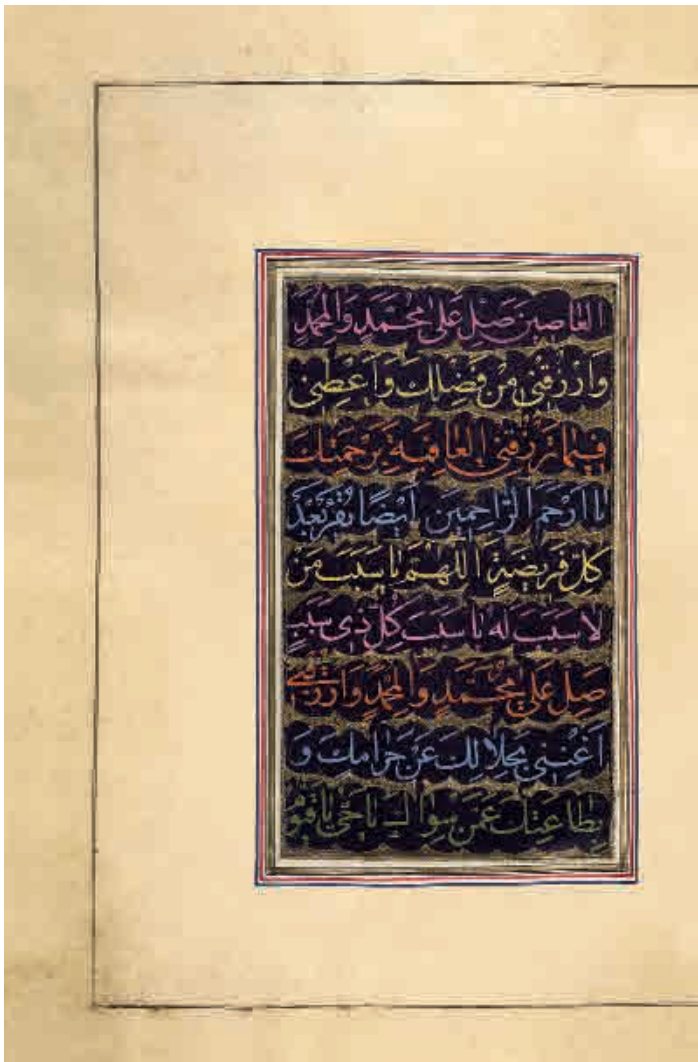 العاصين صَلِّ عَلىٰ مُحَمَّدٍ وَالِ مُحَمَّدٍ
وَارْزُقْنى مِنْ فَضْلِكَ وَاَعْطِنى
فيما تَرْزُقُنى العٰافِيَةَ بِرَحْمَتِكَ
يا اَرْحَمَ الرّاحِمينَ اَيضًا يُقْرَء بَعْدَ
كُلِّ فَريضَةٍ اَللّٰهُمَّ يا سَبَبَ مَنْ
لا سَبَبَ لَه يا سَبَبَ كُلِّ ذى سَبَبٍ
صَلِّ عَلىٰ مُحَمَّدٍ وَالِ مُحَمَّدٍ وَارْزُقْنى
اَغْنِنى بِحَلالِكَ عَنْ حَرامِكَ وَ
بِطاعَتِكَ عَمَّنْ سِواكَ يا حَىُّ يا قَيُّوم